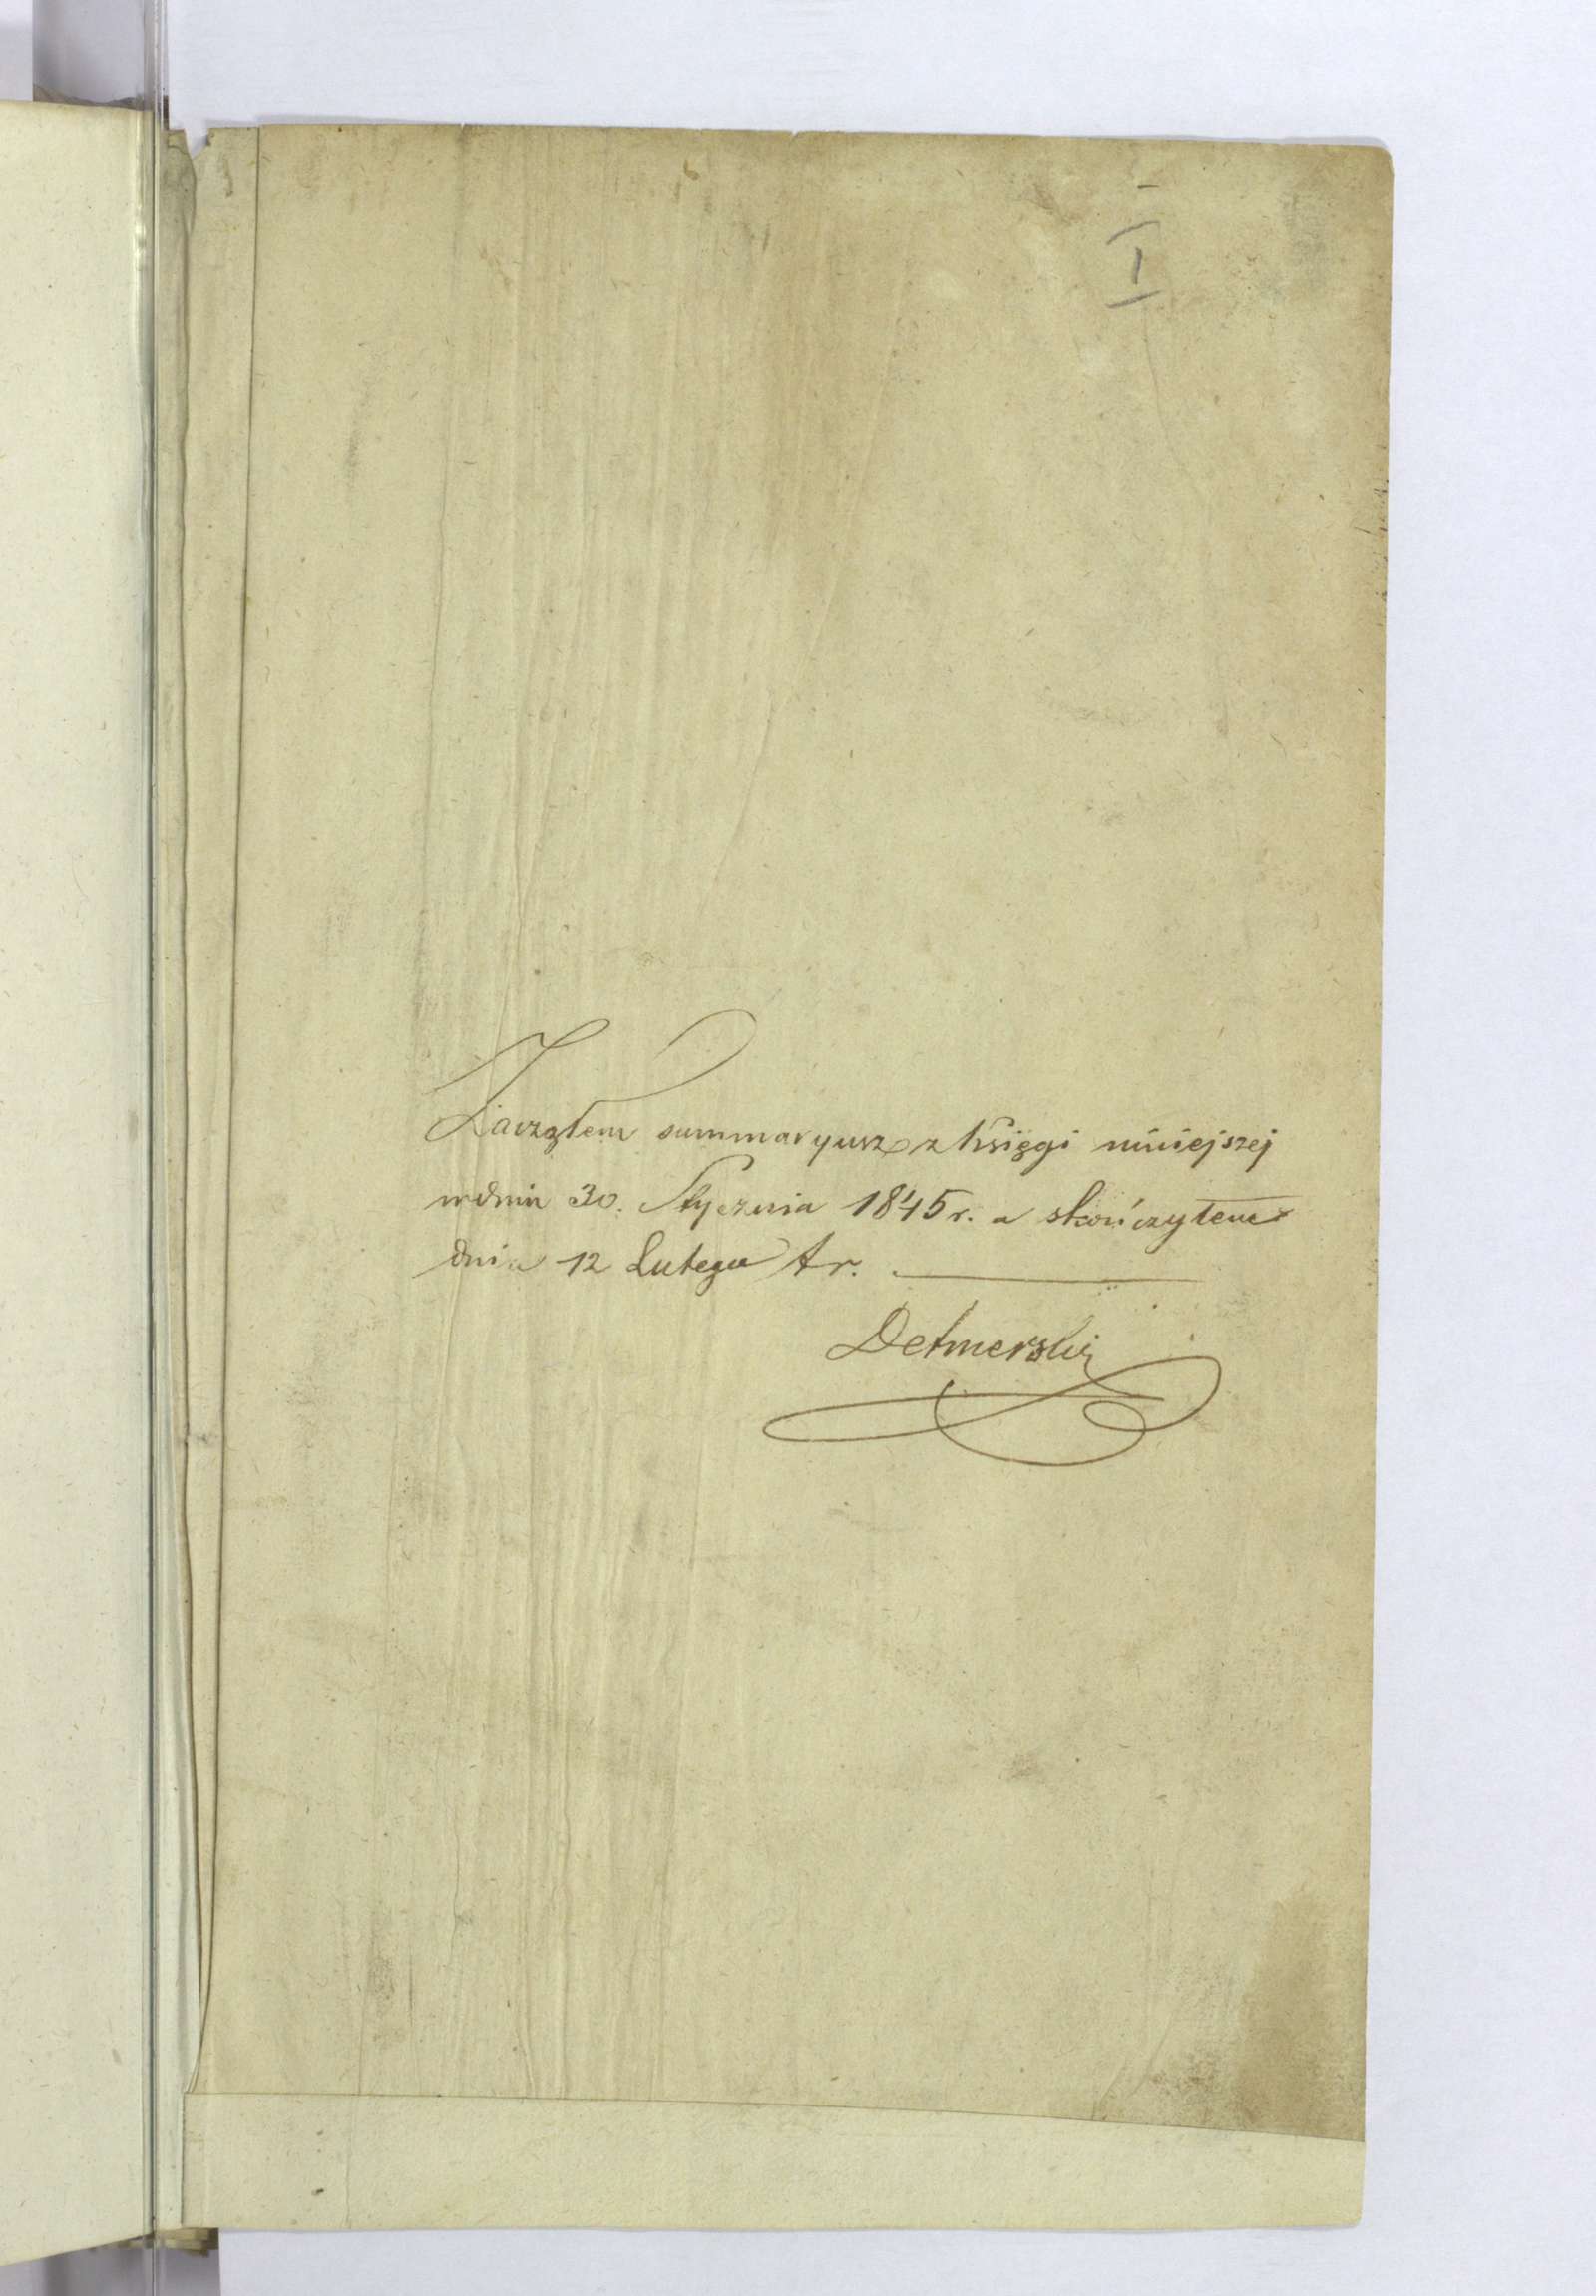 I
Zacząłem summaryusz z Księgi niniejszej
w dniu 30. Stycznia 1845 r. a skończyłem
dnia 12 Lutego t r.
Detmerski